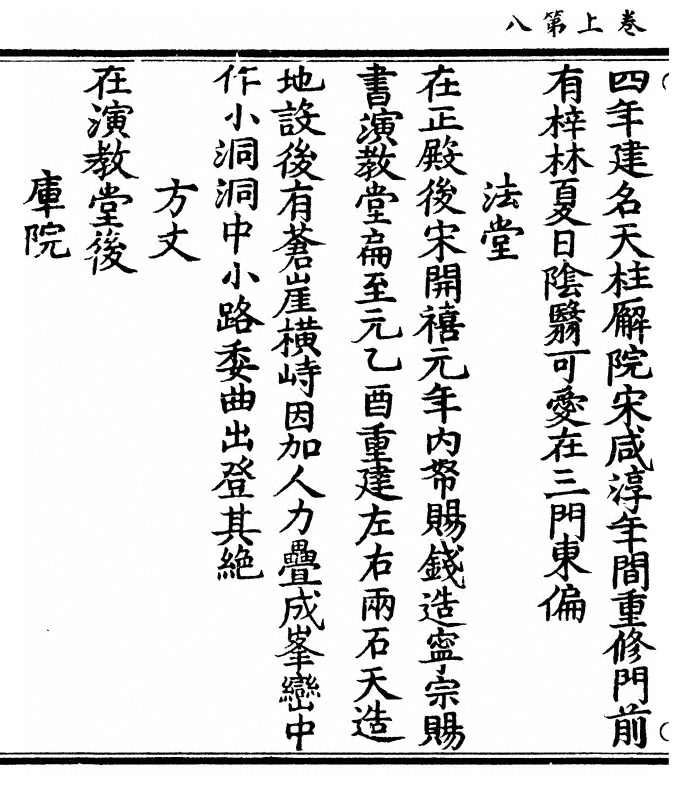 卷上第八
四年建名天柱廨院宋咸淳年間重修門前
有梓林夏日陰翳可愛在三門東偏
法堂
在正殿後宋開禧元年内帑賜錢造寧宗賜
書演教堂扁至元乙酉重建左右兩石天造
地設後有蒼崖橫峙因加人力疊成峯巒中
作小洞洞中小路委曲出登其絶
方丈
在演教堂後
庫院